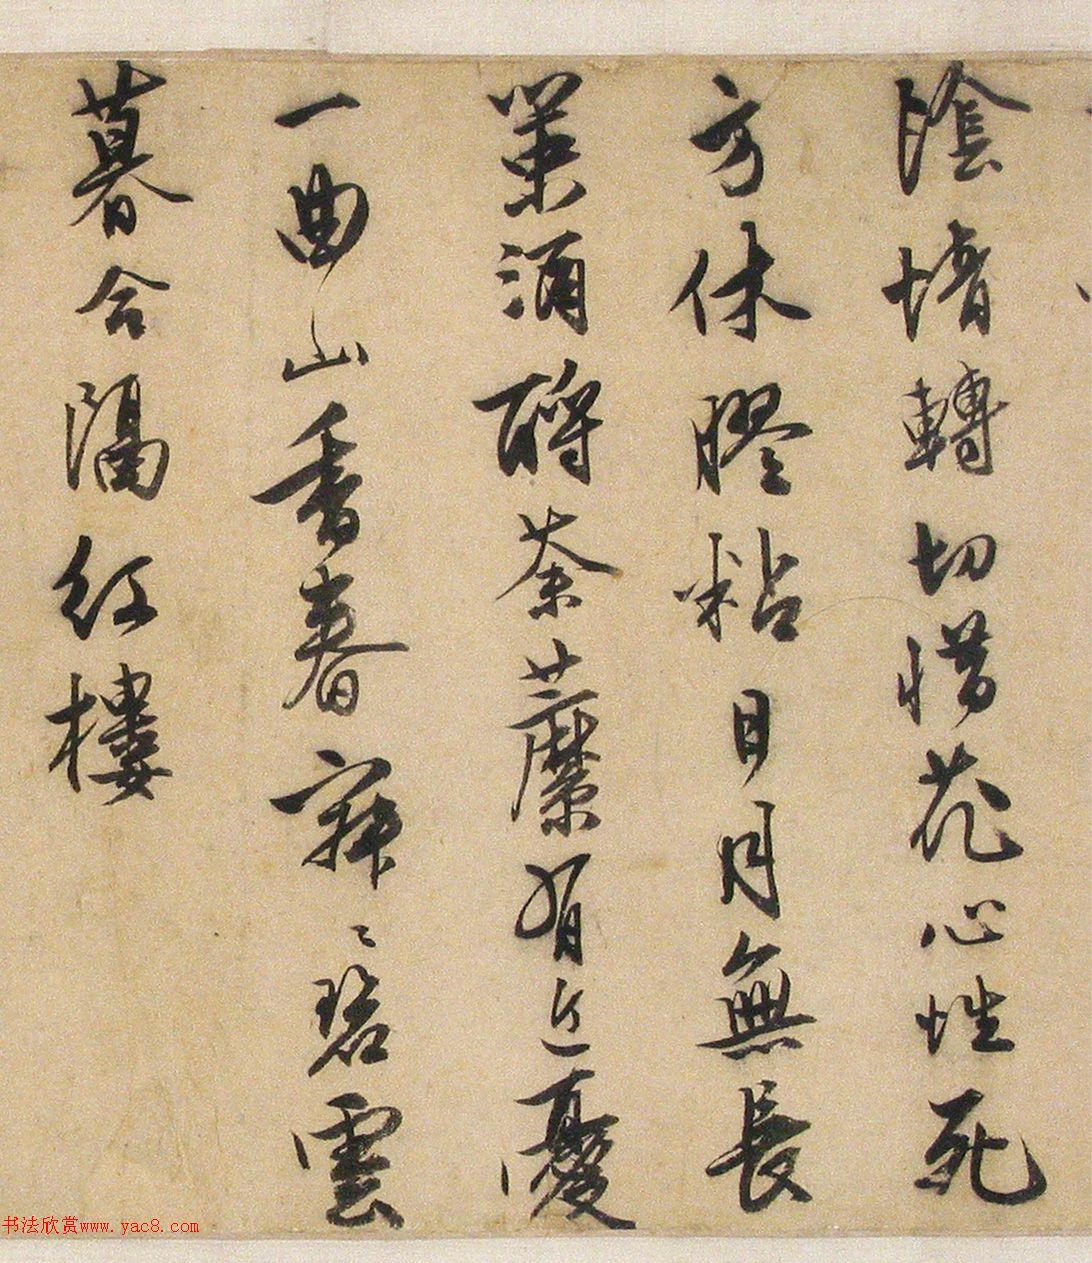 陰情轉切惜花心性死
方休膠粘日月無長
策酒酹荼蘼有近憂
一曲山香春寂〻碧雲
暮合隔紅樓
书法欣赏www.yac8.com